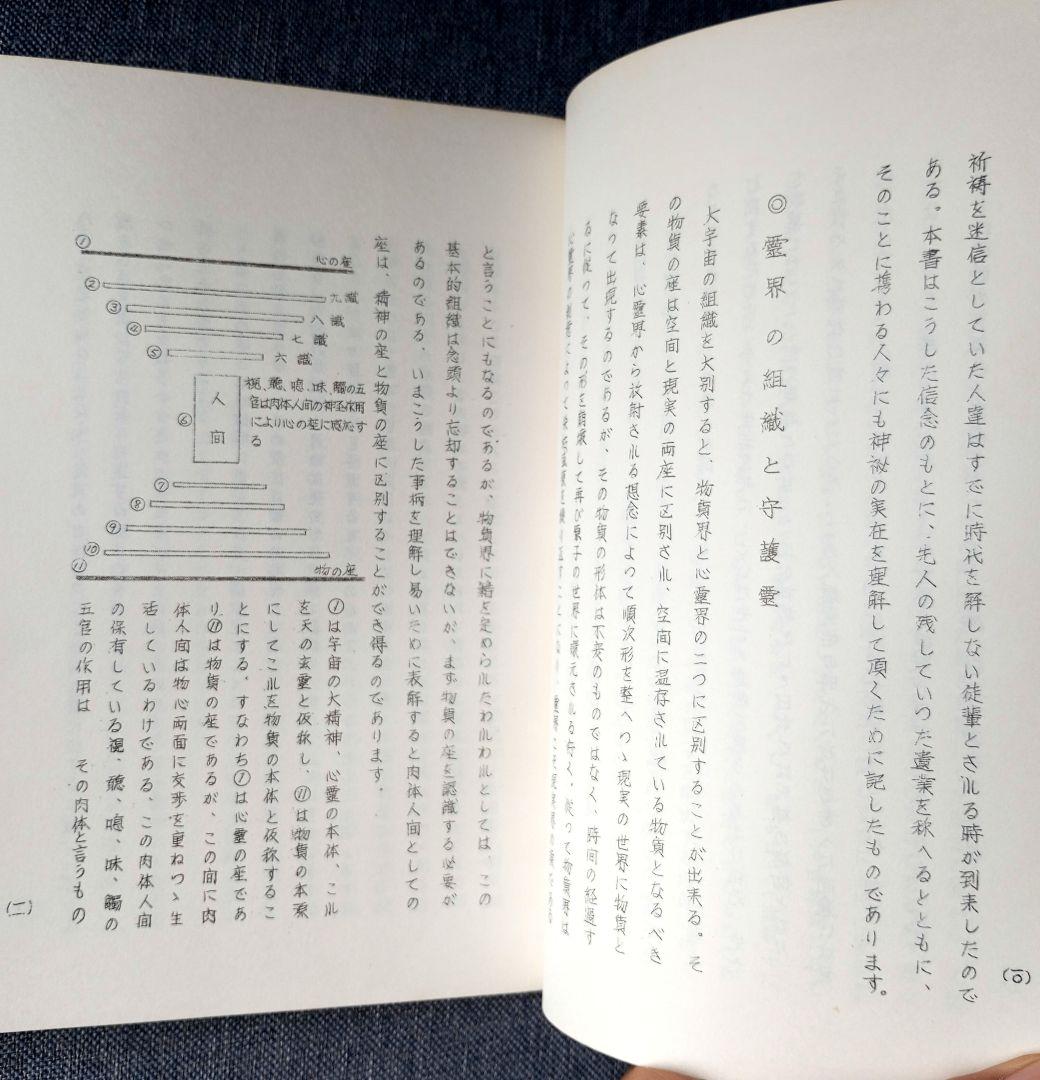 祈祷を迷信としていた人達はすでに時代を解しない徒輩とされる時が到来したので
ある。本書はこうした信念のもとに、先人の残していつた遺業を称へるとともに、
そのことに携わる人々にも神秘の実在を理解して頂くために記したものであります。
◎霊界の組織と守護霊
大宇宙の組織を大別すると、物質界と心霊界の二つに区別することが出来る。そ
の物質の座は空間と現実の両座に区別され、空間に温存されている物質となるべき
要素は、心霊界から放射される想念によって順次形を整へつゝ現実の世界に物質と
なって出現するのであるが、その物質の形体は不変のものではなく、時間の経過す
るに従って、その形を崩壊して再び原子の世界に還元される
(一〇)
と言うことにもなるのであるが、物質界に籍を定められたわれわれとしては、この
基本的組織は念頭より忘却することはできないが、まず物質の座を認識する必要が
あるのである、いまこうした事柄を理解し易いために表解すると肉体人間としての
座は、精神の座と物質の座に区別することができ得るのであります。
① 心の座
② 九識
③ 八識
④ 七識
⑤ 六識
⑥ 人間
視、聽、嗅、味、觸の五
官は肉体人間の神経作用
により心の座に感応す
る
⑦
⑧
⑨
⑩
⑪ 物の座
①は宇宙の大精神、心霊の本体、これ
を天の玄霊と仮称し、⑪は物質の本源
にしてこれを物質の本体と仮称するこ
とにする、すなわち①は心霊の座であ
り⑪は物質の座であるが、この間に肉
体人間は物心両面に交渉を重ねつゝ生
活しているわけである、この肉体人間
の保有している視、聽、嗅、味、觸の
五官の作用は その肉体と言うもの
(二)